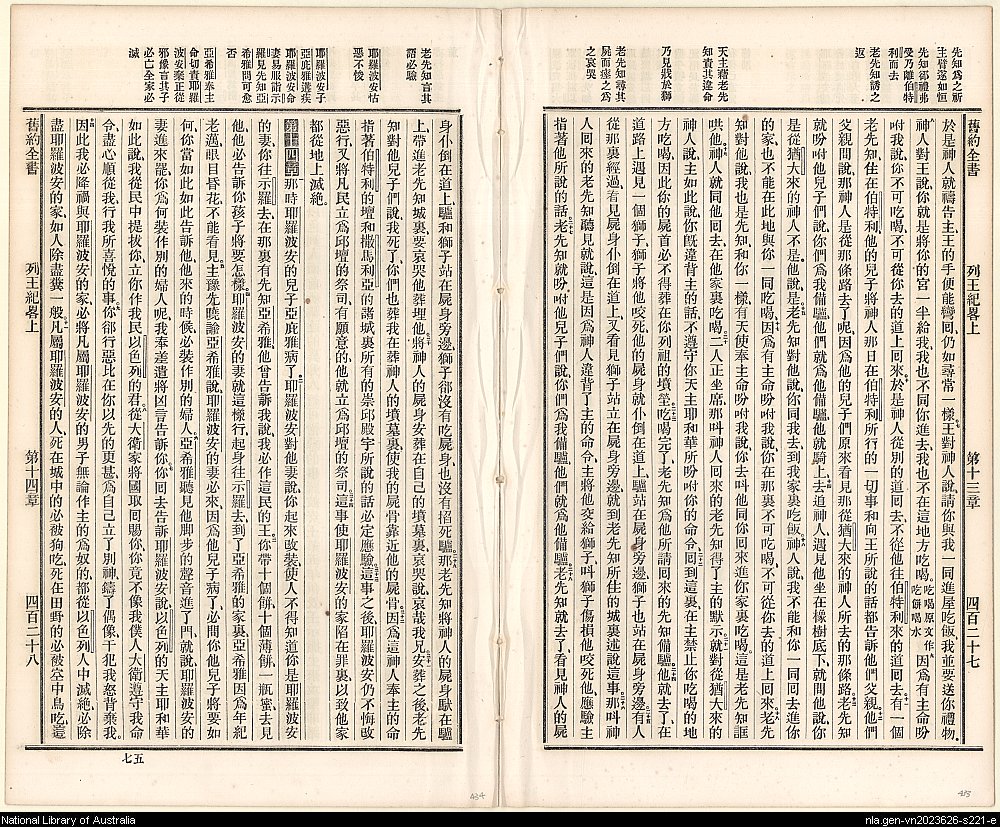 先知為之祈
主臂遂如恒
先知卻禮弗
受乃離伯特
利而去
老先知誘之
返
天主藉老先
知責其違命
乃見戕於獅
老先知尋其
屍而瘞之為
之哀哭
舊約全書 列王紀畧上 第十三章 四百二十七
於是神人就禱告主王的手便能彎囘仍如尋常一樣王對神人說請你與我一同進屋吃飯我並要送你禮物
神人對王說你就是將你的宮一半給我我也不同你進去我也不在這地方吃喝吃喝原文作吃餅喝水因為有主命吩
咐我說你不可吃喝不可從你去的道上囘來於是神人從別的道囘去不從他往伯特利來的道囘去有一個
老先知住在伯特利他的兒子將神人那日在伯特利所行的一切事和向王所說的話都告訴他們父親他們
父親問說那神人是從那條路去了呢因為他的兒子們原來看見那從猶大來的神人所去的那條路老先知
就吩咐他兒子們說你們為我備驢他們就為他備驢他就騎上去追神人遇見他坐在橡樹底下就問他說你
是從猶大來的神人不是他說是老先知對他說你同我去到我家裏吃飯神人說我不能和你一同囘去進你
的家也不能在此地與你一同吃喝因為有主命吩咐我說你在那裏不可吃喝不可從你去的道上囘來老先
知對他說我也是先知和你一樣有天使奉主命吩咐我說你去叫他同你囘來進你家裏吃喝這是老先知誆
哄他神人就同他囘去在他家裏吃喝二人正坐席那叫神人囘來的老先知得了主的默示就對從猶大來的
神人說主如此說你旣違背主的話不遵守你天主耶和華所吩咐你的命令囘到這裏在主禁止你吃喝的地
方吃喝因此你的屍首必不得葬在你列祖的墳塋吃喝完了老先知為他所請囘來的先知備驢他就去了在
道路上遇見一個獅子獅子將他咬死他的屍身就仆倒在道上驢站在屍身旁邊獅子也站在屍身旁邊有人
從那裏經過看見屍身仆倒在道上又看見獅子站立在屍身旁邊就到老先知所住的城裏述說這事那叫神
人囘來的老先知聽見就說這是因為神人違背了主的命令主將他交給獅子叫獅子傷損他咬死他應驗主
指著他所說的話老先知就吩咐他兒子們說你們為我備驢他們就為他備驢老先知就去了看見神人的屍
老先知言其
語必驗
耶羅波安怙
惡不悛
耶羅波安子
亞庇雅遘疾
耶羅波安命
妻易服詣示
羅見先知亞
希雅問可愈
否
亞希雅奉主
命切責耶羅
波安棄正從
邪豫言其子
必亡全家必
滅
身仆倒在道上驢和獅子站在屍身旁邊獅子卻沒有吃屍身也沒有招死驢那老先知將神人的屍身馱在驢
上帶進老先知城裏要哀哭他葬埋他將神人的屍身安葬在自己的墳墓裏哀哭說哀哉我兄安葬之後老先
知對他兒子們說我死了你們也葬我在葬神人的墳墓裏使我的屍骨靠近他的屍骨因為這神人奉主的命
指著伯特利的壇和撒馬利亞的諸城裏所有的崇邱殿宇所說的話必定應驗這事之後耶羅波安仍不悔改
惡行又將凡民立為邱壇的祭司有願意的他就立為邱壇的祭司這事使耶羅波安的家陷在罪裏以致他家
都從地上滅絕
第十四章那時耶羅波安的兒子亞庇雅病了耶羅波安對他妻說你起來改裝使人不得知道你是耶羅波安
的妻你往示羅去在那裏有先知亞希雅他曾告訴我說我必作這民的王你帶十個餅十個薄餅一瓶蜜去見
他他必告訴你孩子將要怎樣耶羅波安的妻就這樣行起身往示羅去到了亞希雅的家裏亞希雅因為年紀
老邁眼目昏花不能看見主豫先曉諭亞希雅說耶羅波安的妻必來因為他兒子病了必問你他兒子將要如
何你當如此如此告訴他他來的時候必裝作別的婦人亞希雅聽見他脚步的聲音進了門就說耶羅波安的
妻進來罷你為何裝作別的婦人呢我奉差遣將凶言告訴你你囘去告訴耶羅波安說以色列的天主耶和華
如此說我從民中提拔你立你作我民以色列的君從大衛家將國取囘賜你你竟不像我僕人大衛遵守我命
令盡心順從我行我所喜悅的事你卻行惡比在你以先的更甚為自己立了別神鑄了偶像干犯我怒背棄我
因此我必降禍與耶羅波安的家必將凡屬耶羅波安的男子無論作主的為奴的都從以色列人中滅絕必除
盡耶羅波安的家如人除盡糞一般凡屬耶羅波安的人死在城中的必被狗吃死在田野的必被空中鳥吃這
舊約全書 列王紀畧上 第十四章 四百二十八
七五
434
433
National Library of Australia
nla.gen-vn2023626-s221-e